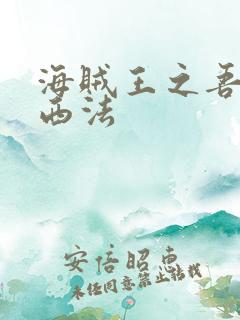 海贼王之吾
西法
安倍昭惠
未经同意禁止转载